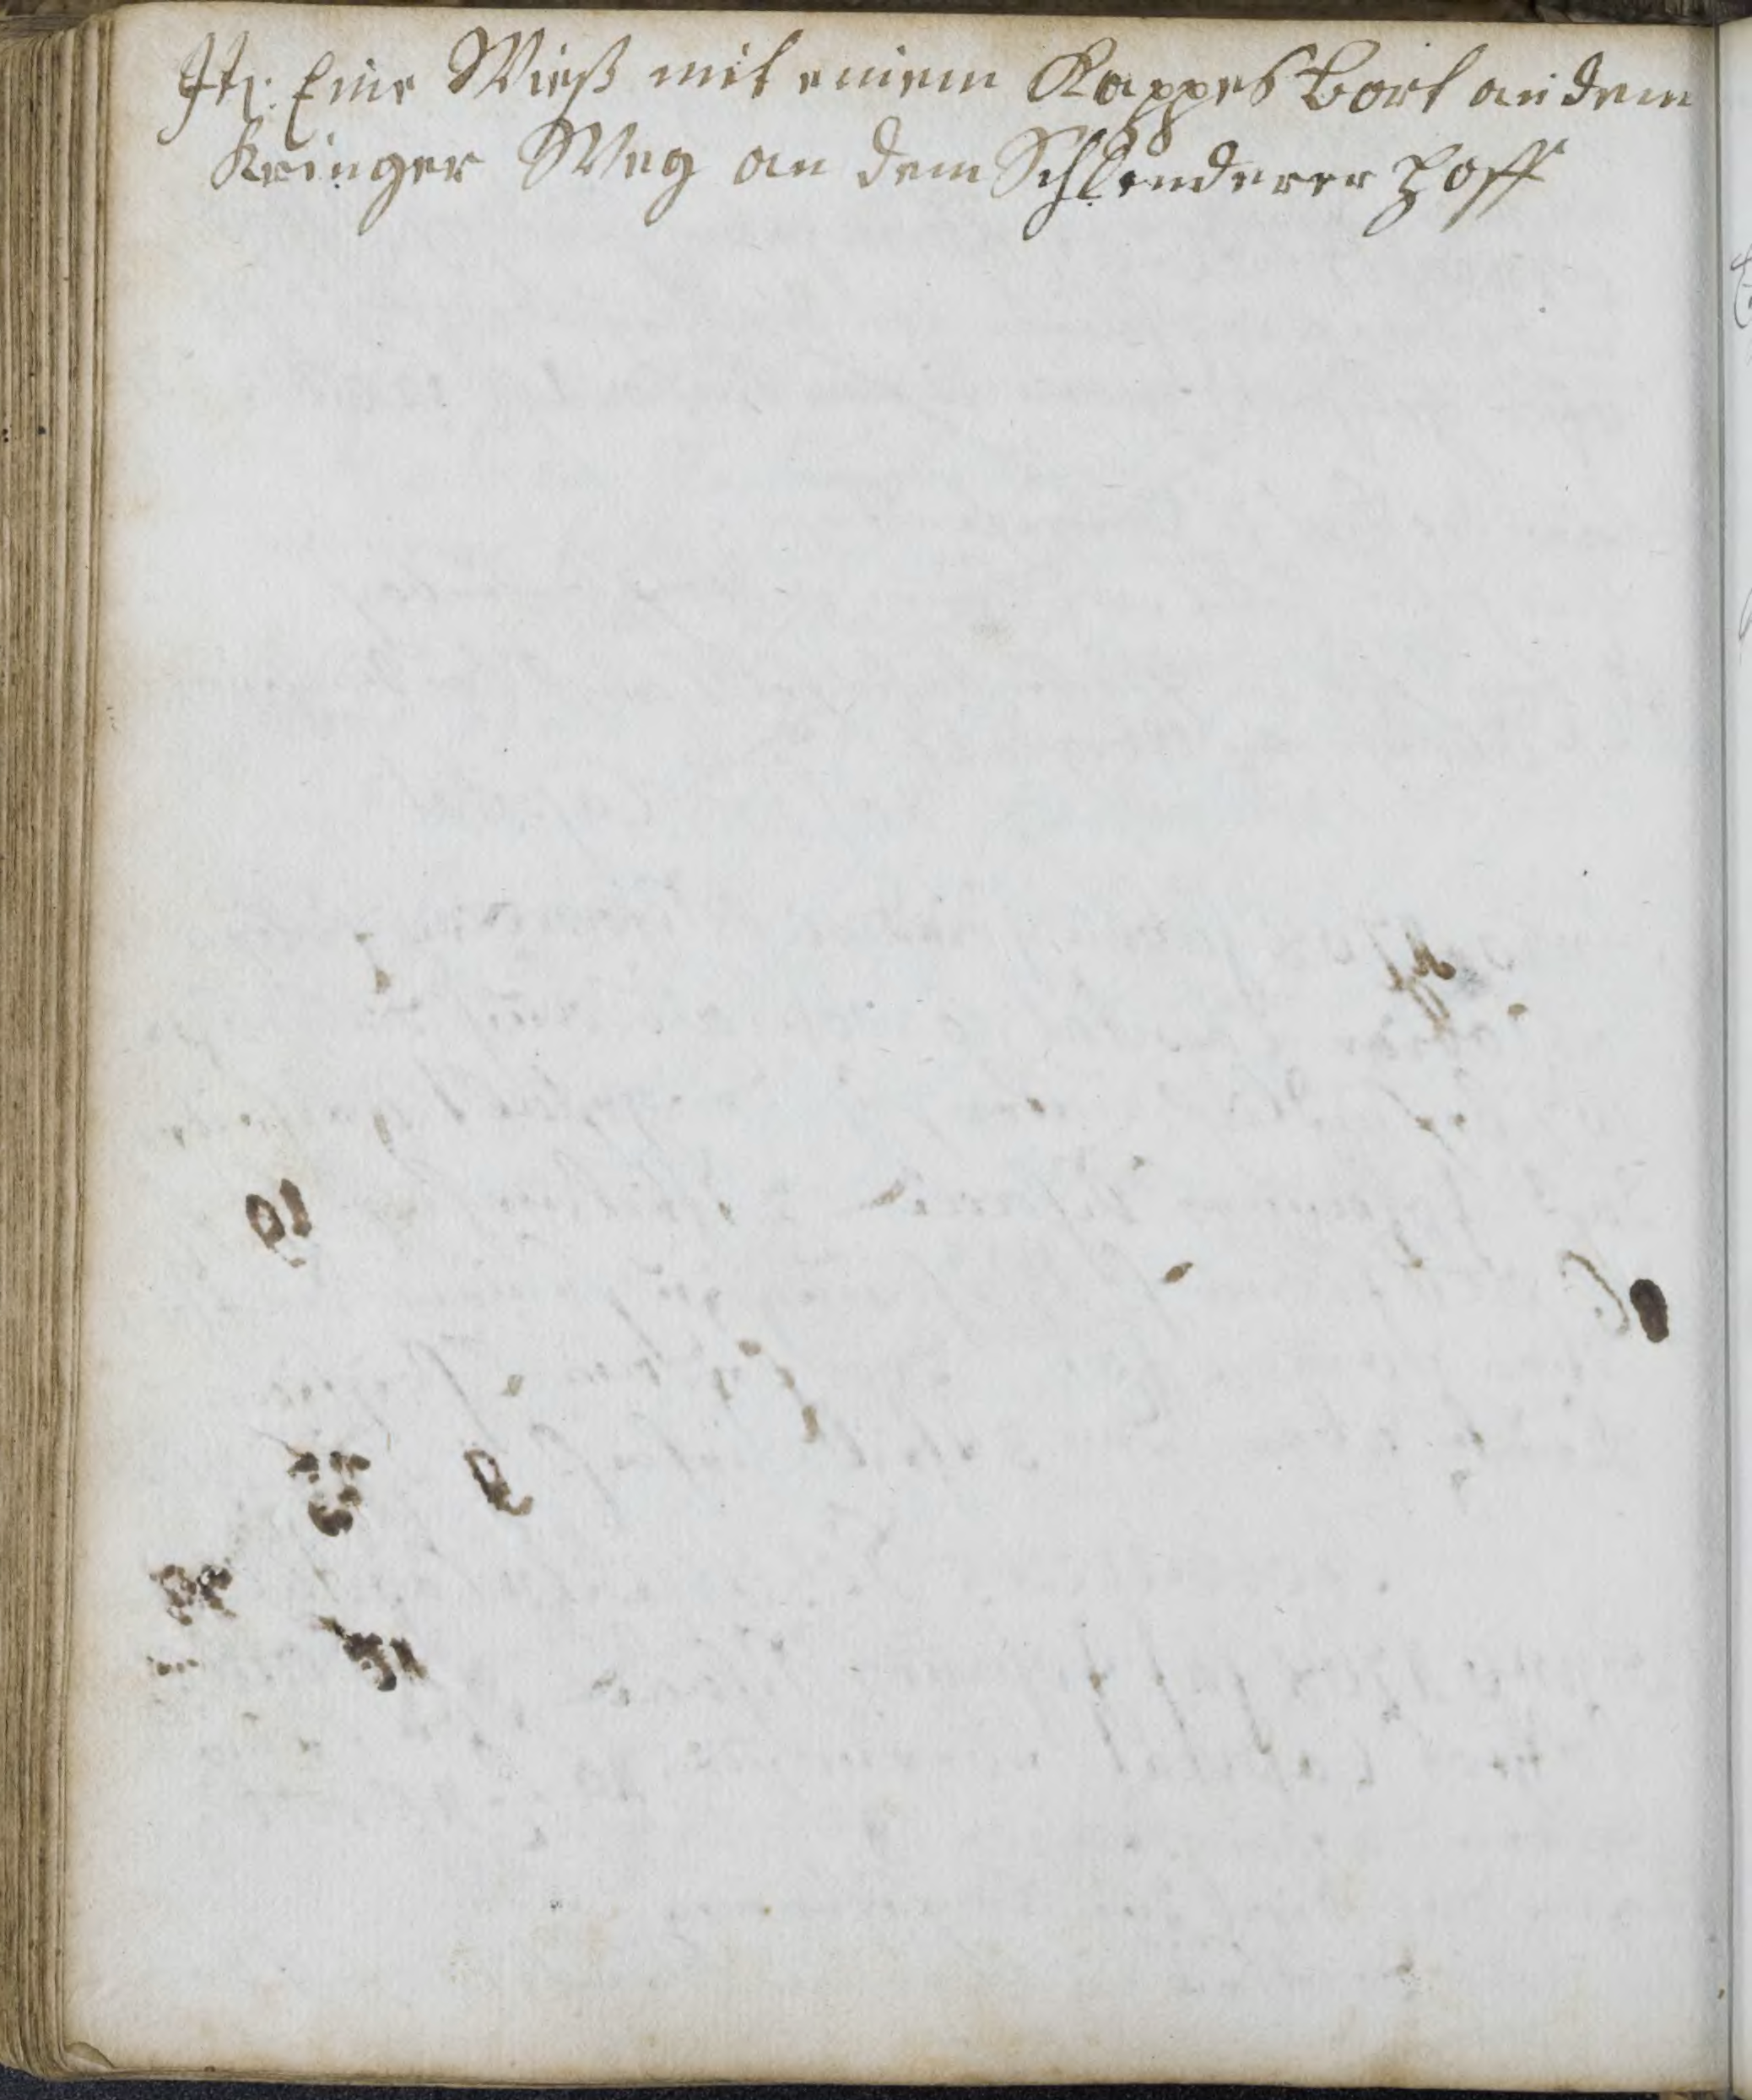 Itz: Eine Wieß mit einem Kappes bort an dem
Kringer Weg an dem Schlenderer Hoff